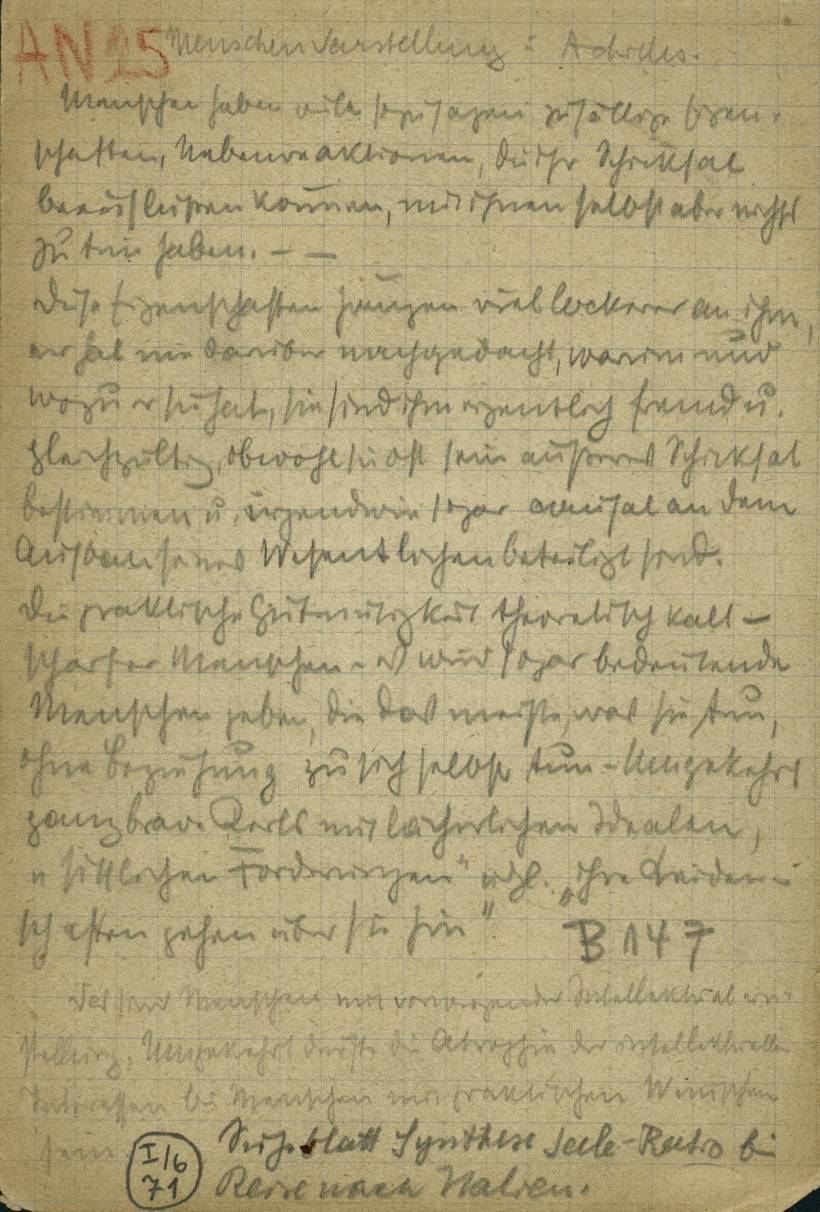 AN 25 Menschendarstellung: Achilles.
Menschen haben viele sozusagen zufällige Eigen-
schaften, Nebenreaktionen, die ihr Schicksal
beeinflussen können, mit ihnen selbst aber nichts
zu tun haben. – –
Diese Eigenschaften hängen viel lockerer an ihm,
er hat nie darüber nachgedacht, warum und
wozu er sie hat, sie sind ihm eigentlich fremd u.
gleichgültig, obwohl sie oft sein äußeres Schicksal
bestimmen u. irgendwie sogar causal an dem
Ausbau seines Wesentlichen beteiligt sind.
Die praktische Gutmütigkeit theoretisch kalt –
scharfer Menschen – es wird sogar bedeutende
Menschen geben, die das meiste, was sie tun,
ohne Beziehung zu sich selbst tun – Umgekehrt
ganz brave Kerls mit lächerlichen Idealen,
„ sittlichen Forderungen" udgl. „ihre Leiden-
schaften gehen über sie hin"
B 147
Das sind Menschen mit vorwiegender Intellektual ein-
stellung. Umgekehrt dürfte die Atrophie der intellektuellen
Interessen bei Menschen mit praktischen Wünschen
sein
I/6
71
Siehe blatt Synthese Seele-Ratio bei
Reise nach Italien.